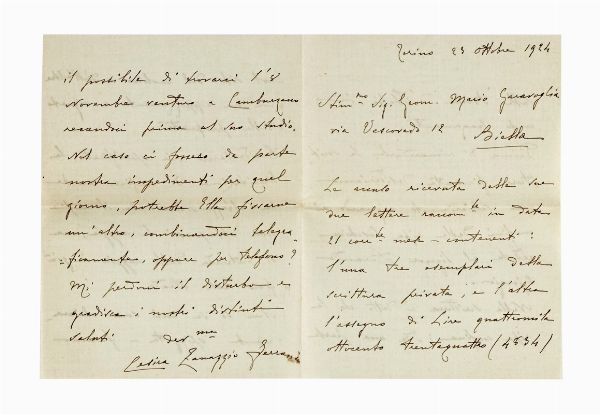 Torino 23 Ottobre 1924
Stim.mo Sig. Geom. Mario Garavoglia
via Vescovado 12
Biella
Le accuso ricevuta delle sue
due lettere raccom.te in data
21 corr.te mese - contenenti:
l'una tre esemplari della
scrittura privata; e l'altra
l'assegno di Lire quattromila
ottocento trentaquattro (4834)
il possibile di trovarci l'8
Novembre venturo a Camburzano
recandoci prima al suo studio.
Nel caso ci fossero da parte
nostra impedimenti per quel
giorno, potrebbe Ella fissarne
un'altro, combinandoci telegra-
=ficamente, oppure per telefono?
Mi perdoni il disturbo e
gradisca i nostri distinti
saluti dev.ma